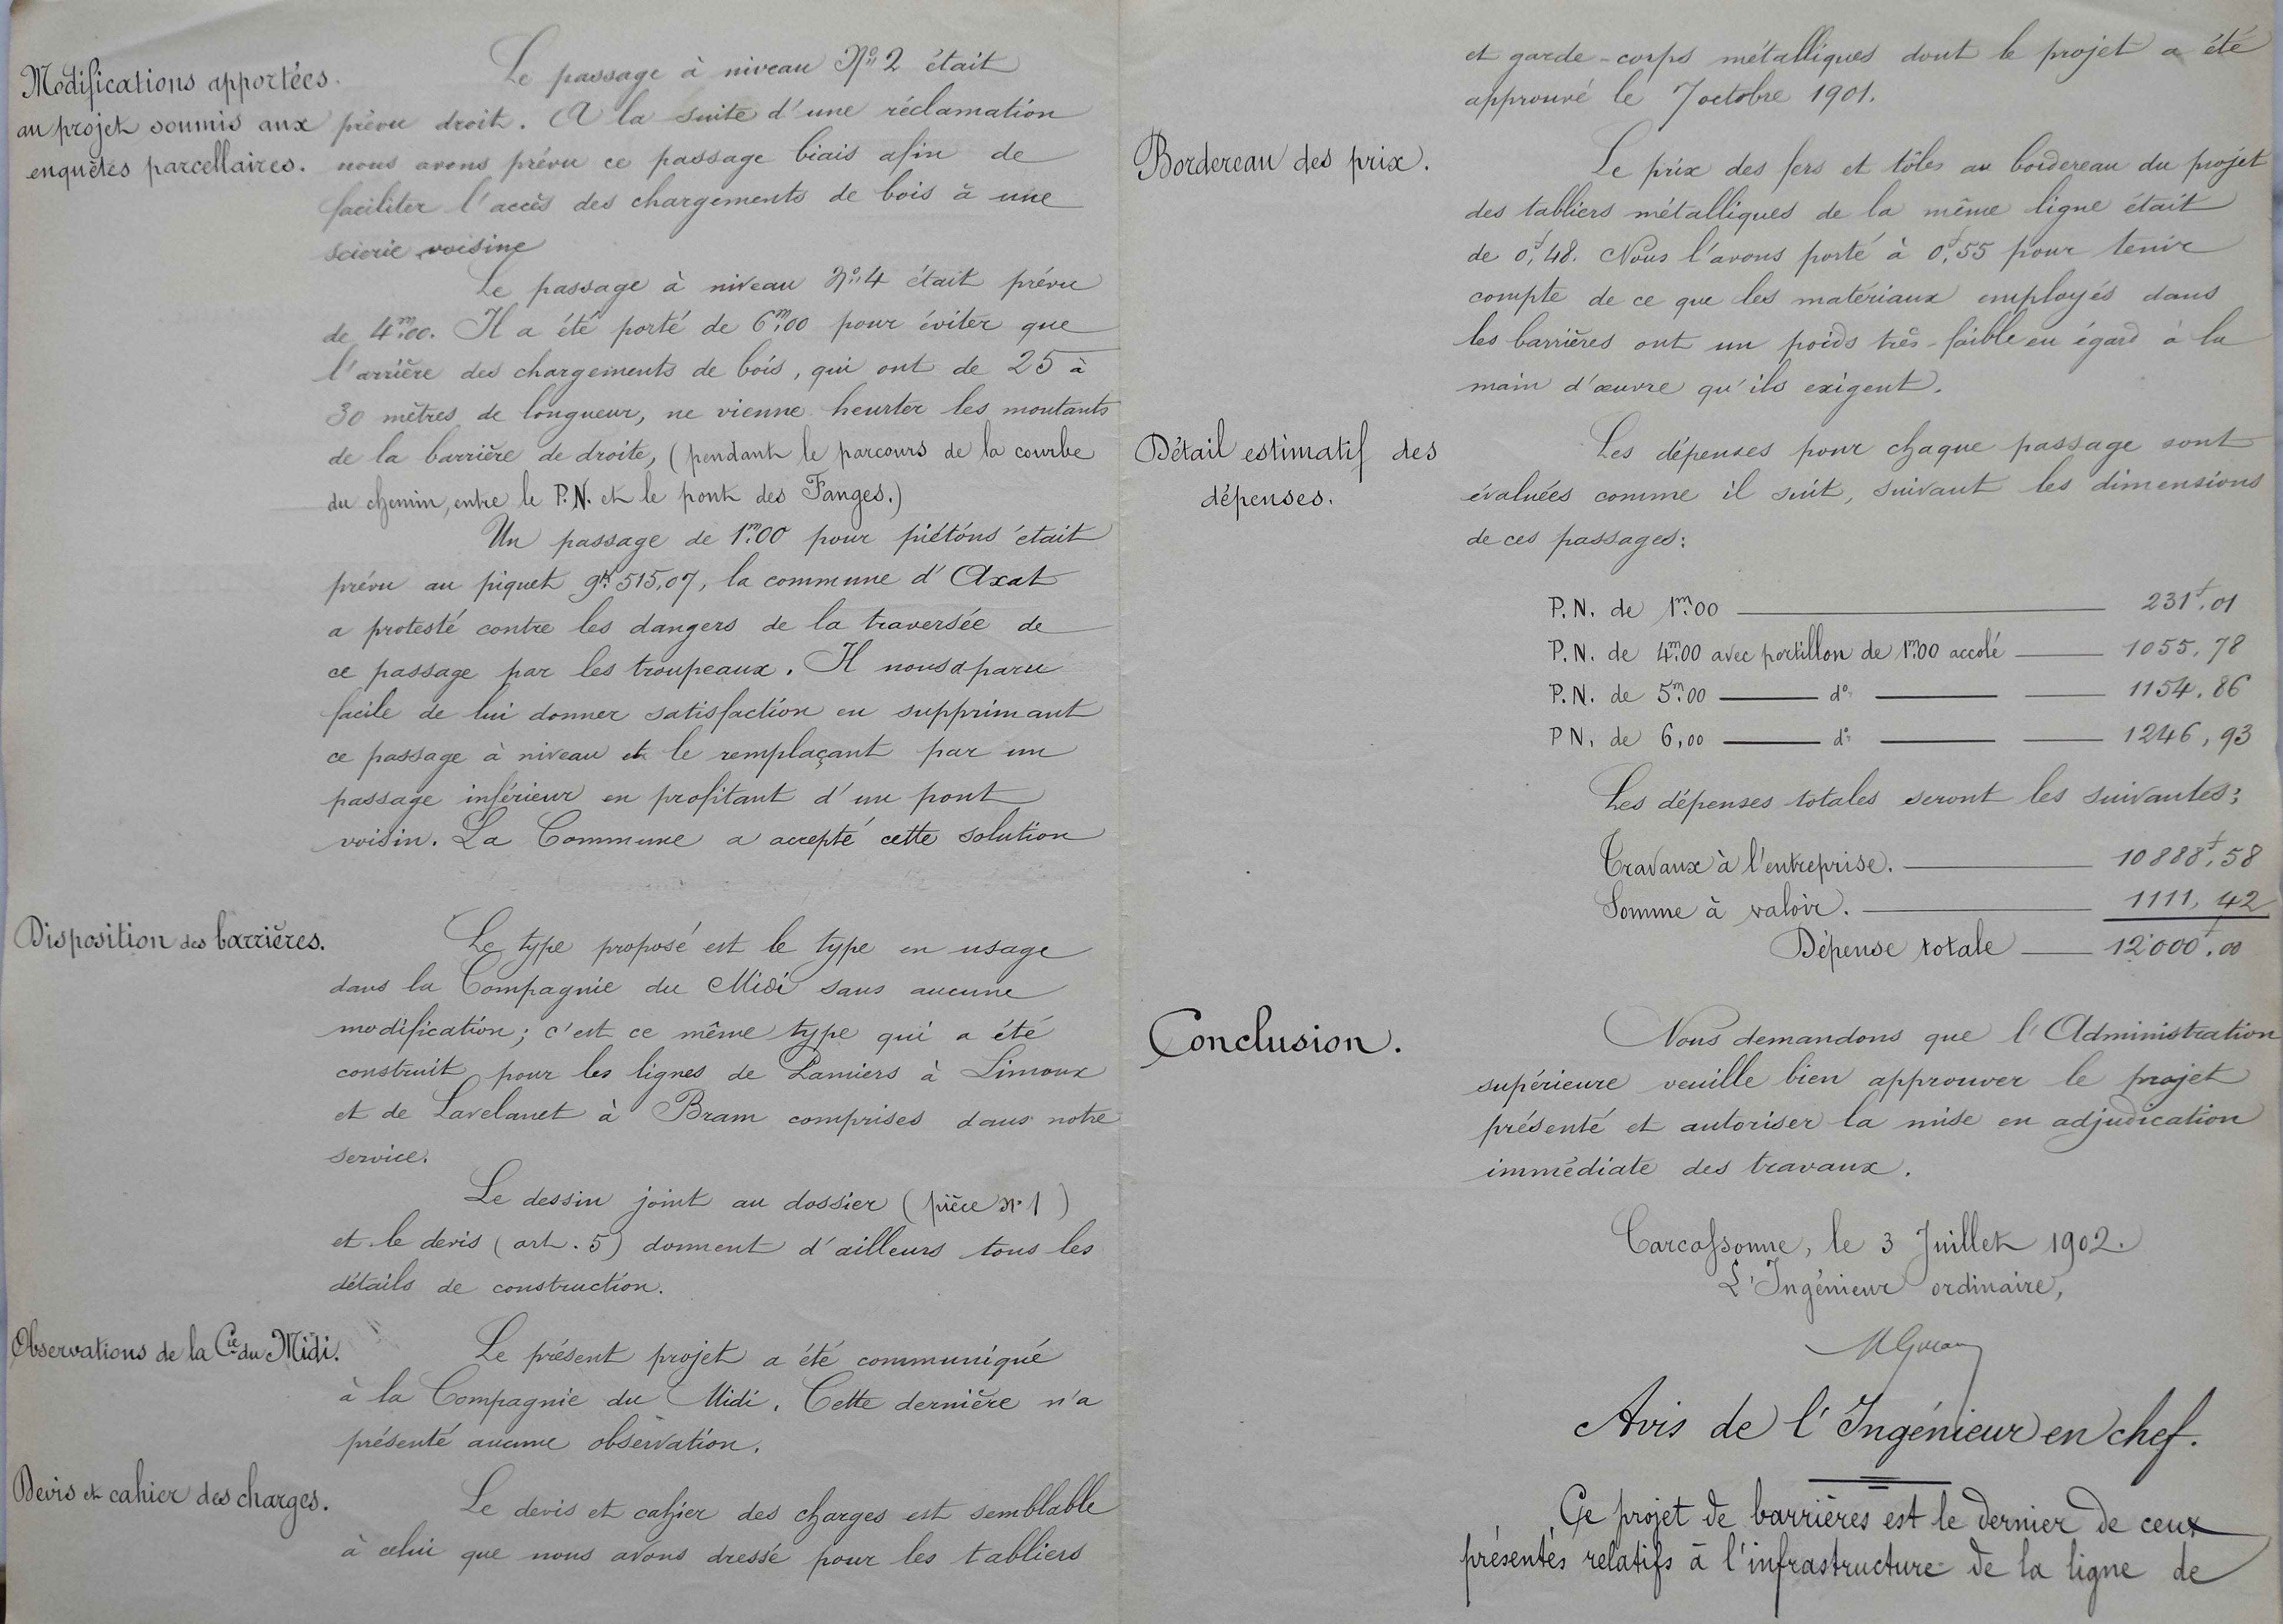 Modifications apportées
au projet soumis aux
enquêtes parcellaires.
Le passage à niveau N° 2 était
prévu droit. A la suite d'une réclamation
nous avons prévu ce passage biais afin de
faciliter l'accès des chargements de bois à une
scierie voisine
Le passage à niveau N° 4 était prévu
de 4m,00. Il a été porté de 6m,00 pour éviter que
l'arrière des chargements de bois, qui ont de 25 à
30 mètres de longueur, ne vienne heurter les montants
de la barrière de droite, (pendant le parcours de la courbe
du chemin, entre le P.N. et le pont des Fanges.)
Un passage de 1m,00 pour piétons était
prévu au piquet 9k.515,07, la commune d'Axat
a protesté contre les dangers de la traversée de
ce passage par les troupeaux. Il nous a paru
facile de lui donner satisfaction en supprimant
ce passage à niveau et le remplaçant par un
passage inférieur en profitant d'un pont
voisin. La Commune a accepté cette solution
Disposition des barrières.
Le type proposé est le type en usage
dans la Compagnie du Midi sans aucune
modification; c'est ce même type qui a été
construit pour les lignes de Pamiers à Limoux
et de Lavelanet à Bram comprises dans notre
service.
Le dessin joint au dossier (pièce N° 1)
et le devis (art. 5) donnent d'ailleurs tous les
détails de construction.
Observations de la Cie du Midi.
Le présent projet a été communiqué
à la Compagnie du Midi. Cette dernière n'a
présenté aucune observation.
Devis et cahier des charges.
Le devis et cahier des charges est semblable
à celui que nous avons dressé pour les tabliers
et garde-corps métalliques dont le projet a été
approuvé le 7 octobre 1901.
Bordereau des prix.
Le prix des fers et tôles au bordereau du projet
des tabliers métalliques de la même ligne était
de 0f,48. Nous l'avons porté à 0f,55 pour tenir
compte de ce que les matériaux employés dans
les barrières ont un poids très-faible eu égard à la
main d'œuvre qu'ils exigent.
Détail estimatif des
dépenses.
Les dépenses pour chaque passage sont
évaluées comme il suit, suivant les dimensions
de ces passages:
P.N. de 1m,00 231f,01
P.N. de 4m,00 avec portillon de 1m,00 accolé 1055,78
P.N. de 5m,00 d° 1154.86
PN. de 6,00 d° 1246,93
Les dépenses totales seront les suivantes:
Travaux à l'entreprise. 10888f,58
Somme à valoir. 1111,42
Dépense totale 12000f,00
Conclusion.
Nous demandons que l'Administration
supérieure veuille bien approuver le projet
présenté et autoriser la mise en adjudication
immédiate des travaux.
Carcassonne, le 3 Juillet 1902.
L'Ingénieur ordinaire,
Avis de l'Ingénieur en chef.
Ce projet de barrières est le dernier de ceux
présentés relatifs à l'infrastructure de la ligne de